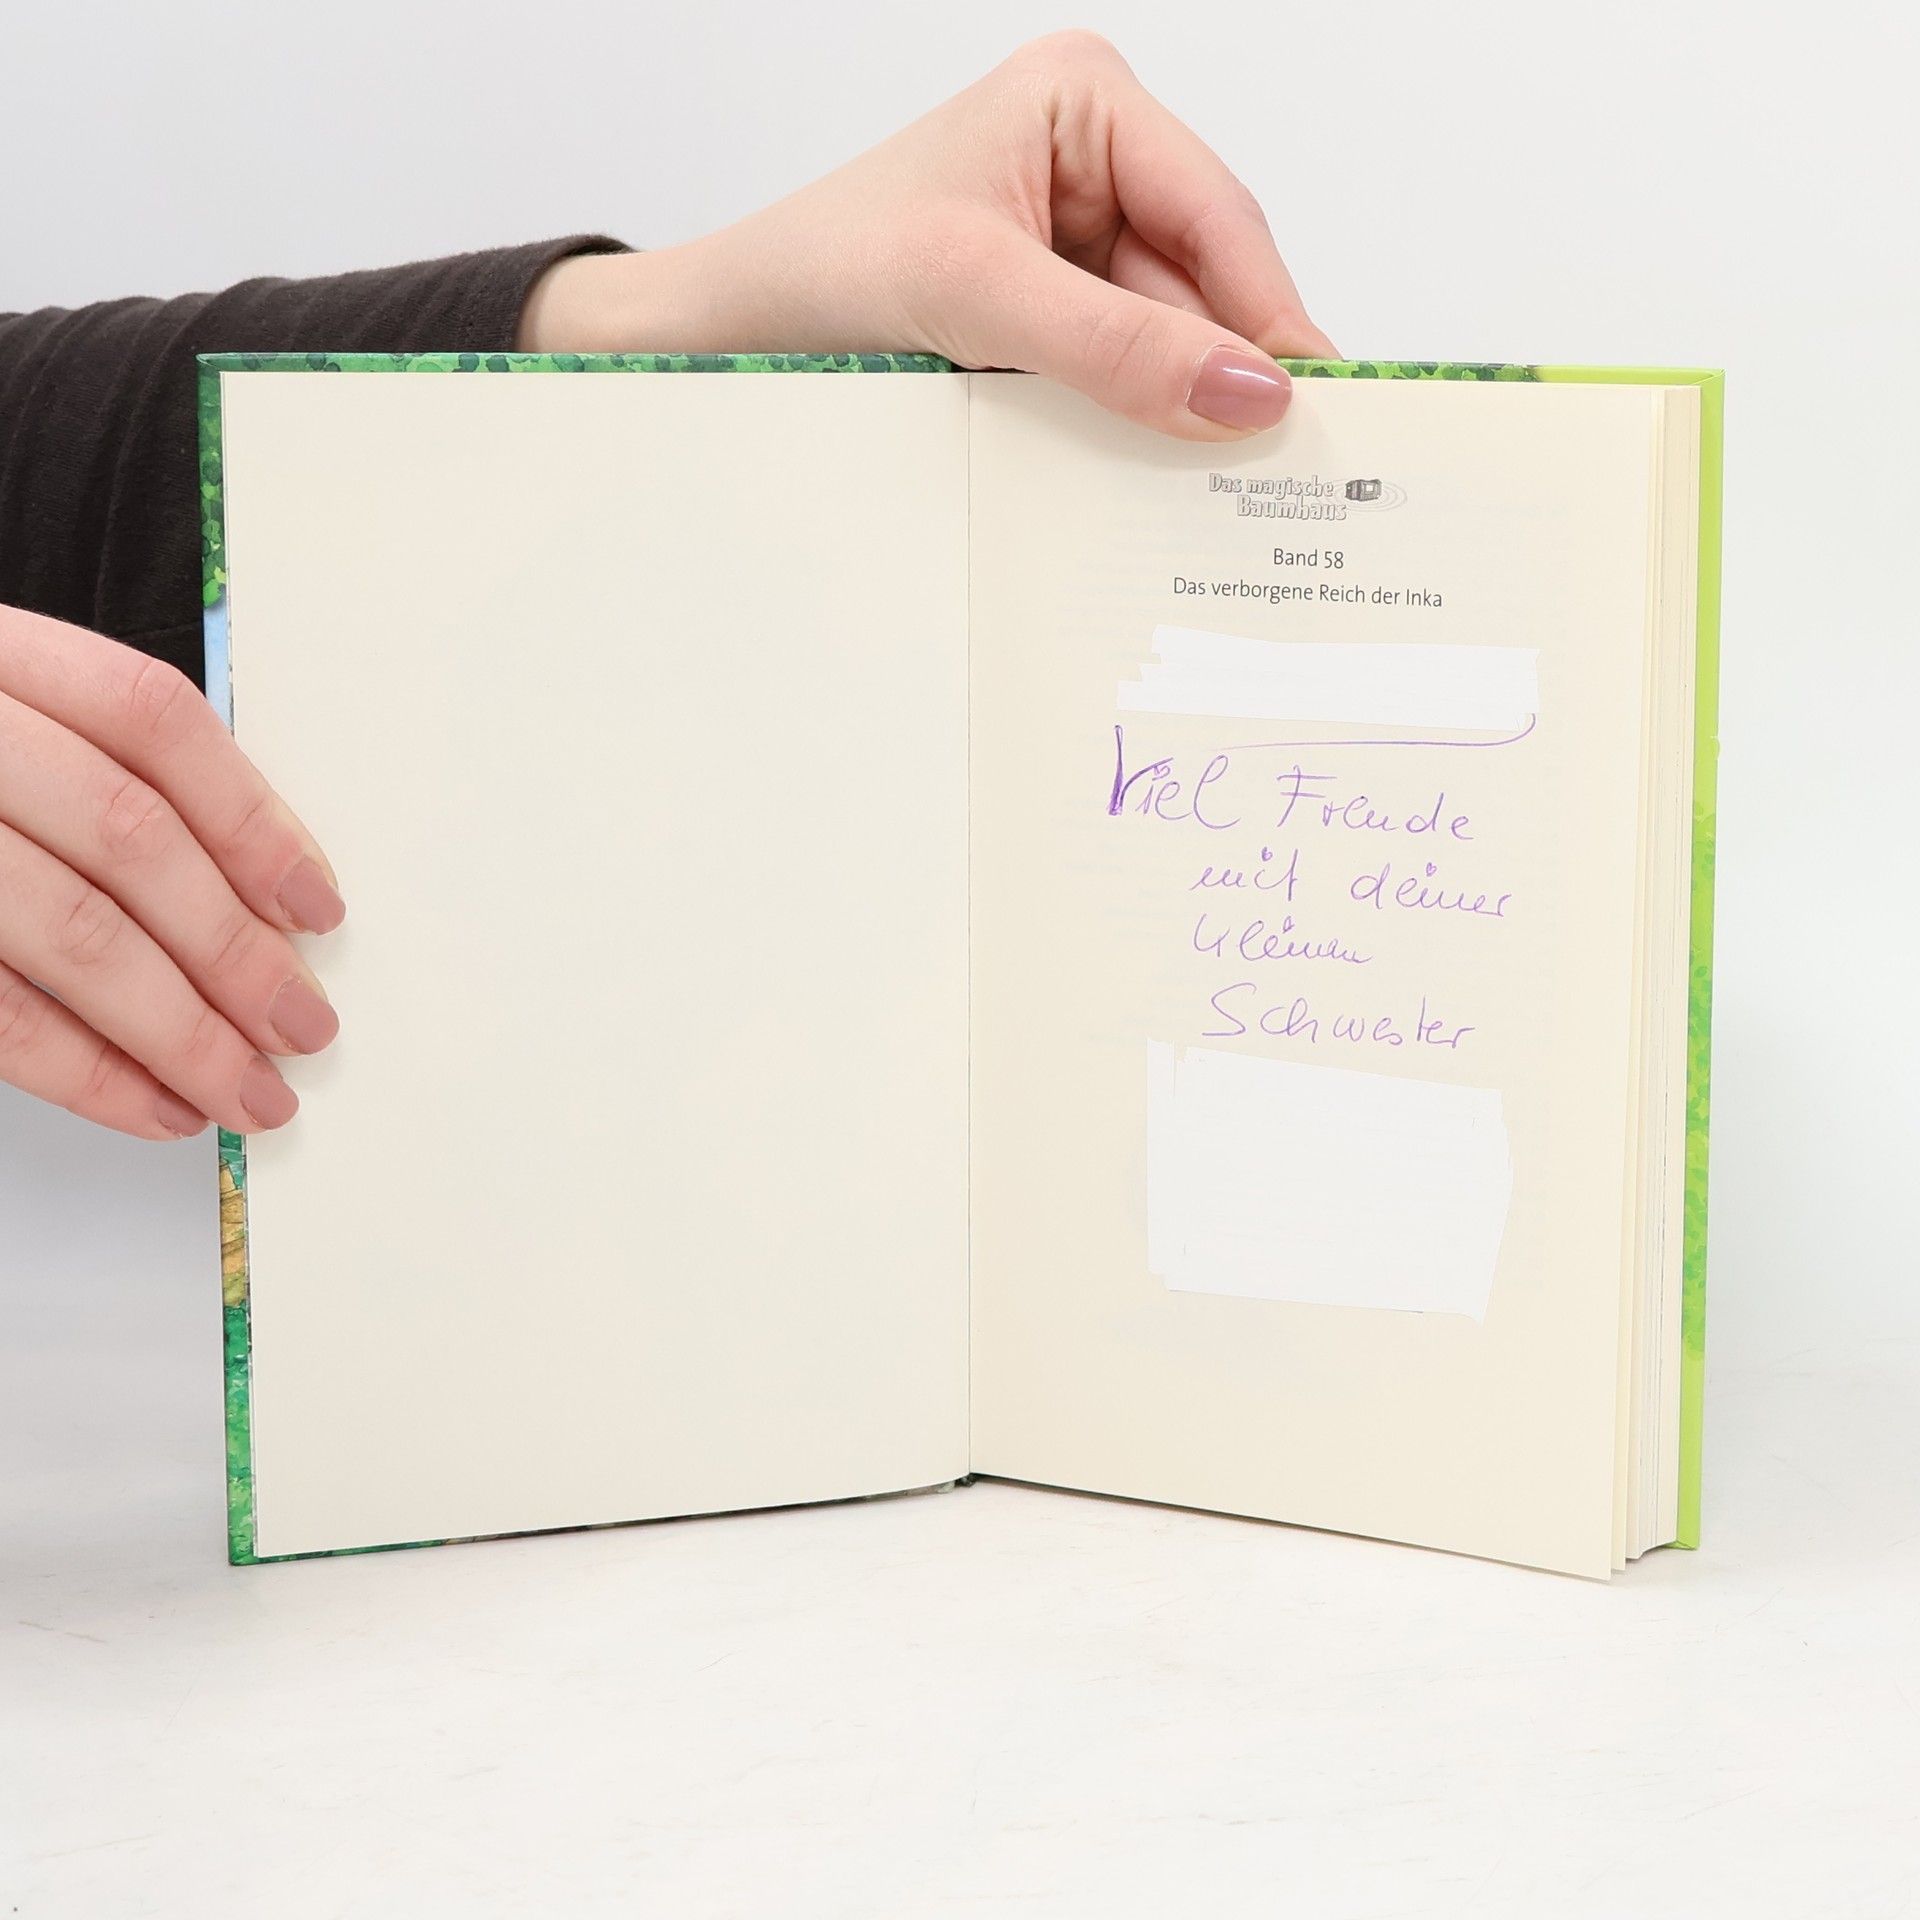 Das magische
Baumhaus
Band 58
Das verborgene Reich der Inka
Viel Freude
mit deiner
kleinen
Schwester